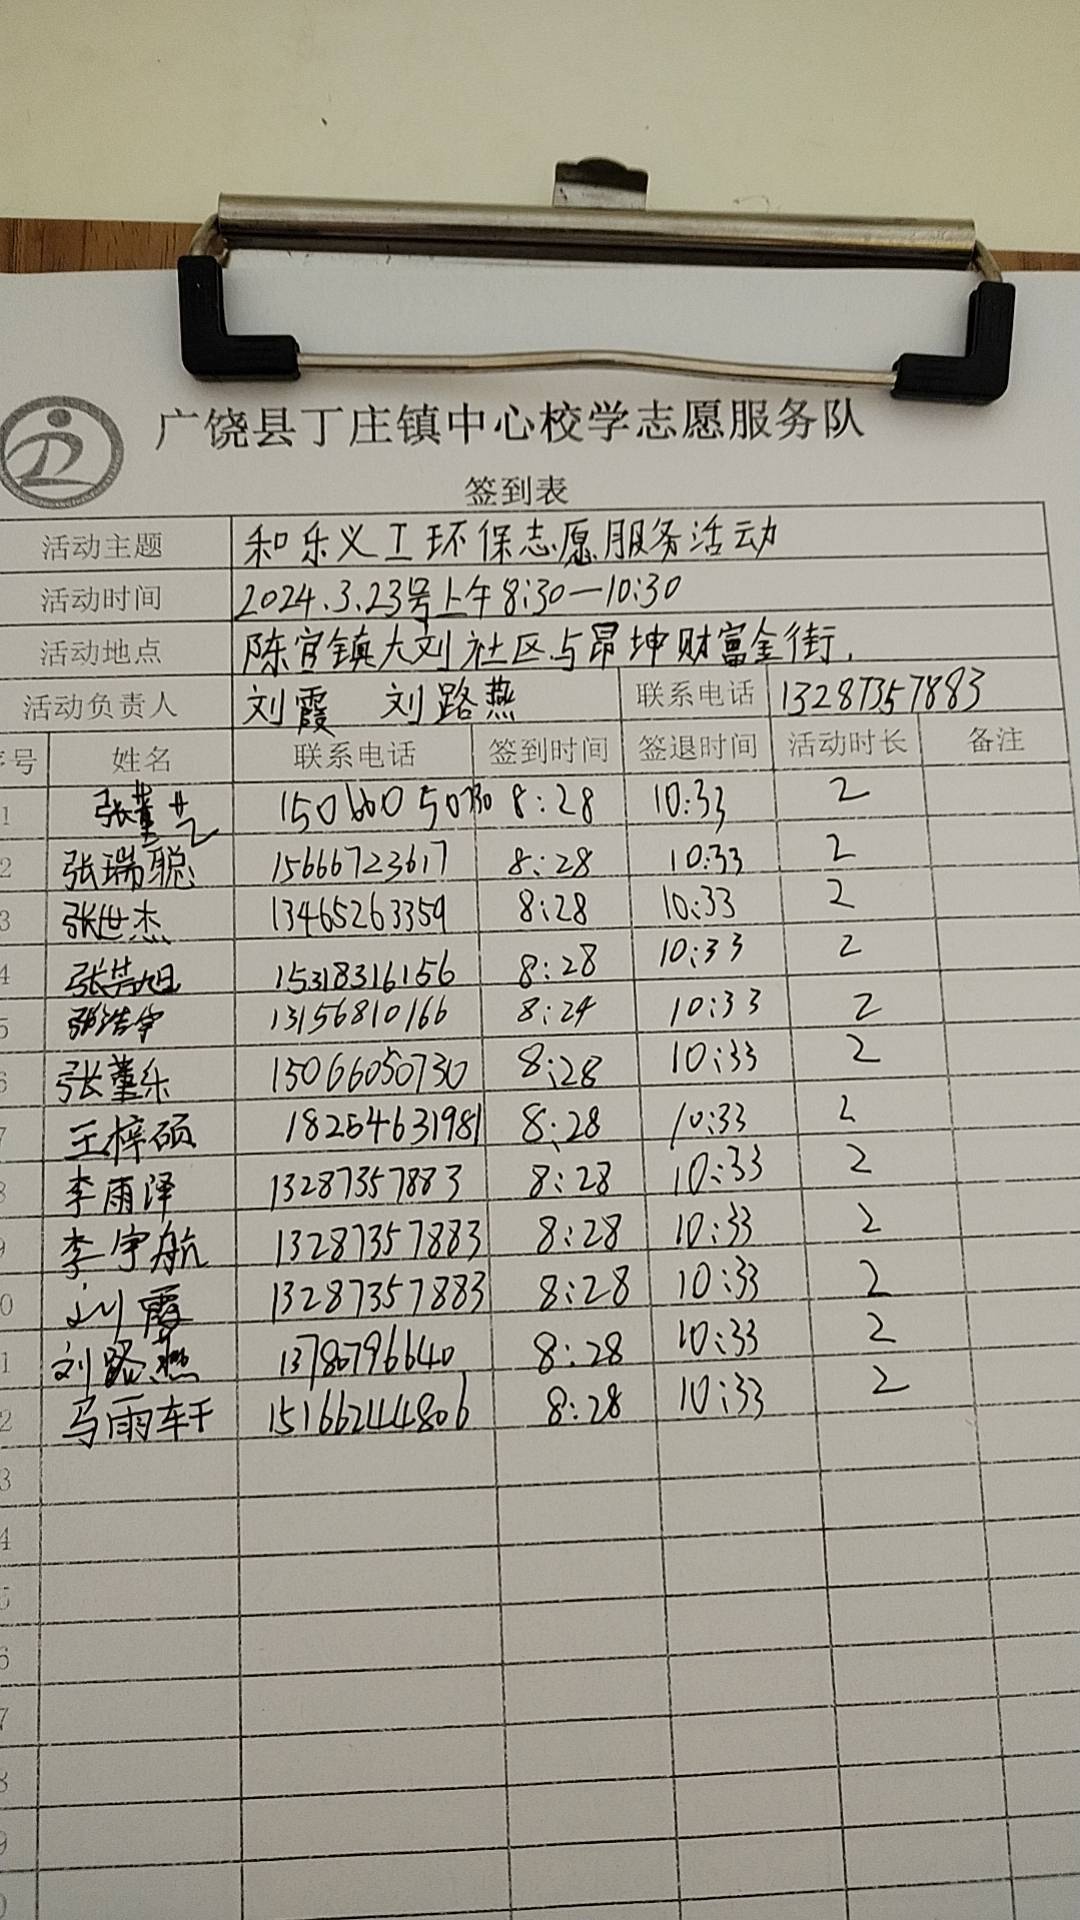 广饶县丁庄镇中心校学志愿服务队
签到表
活动主题 和乐义工环保志愿服务活动
活动时间 2024.3.23号上午8:30—10:30
活动地点 陈官镇大刘社区与昂坤财富金街.
活动负责人 刘霞 刘路燕 联系电话 13287357883
序号 姓名 联系电话 签到时间 签退时间 活动时长 备注
1 张董艺 15066050730 8:28 10:33 2
2 张瑞聪 15666723617 8:28 10:33 2
3 张世杰 13465263359 8:28 10:33 2
4 张芸旭 15318316156 8:28 10:33 2
5 张浩宇 13156810166 8:24 10:33 2
6 张董乐 15066050730 8:28 10:33 2
7 王梓硕 18254631981 8:28 10:33 2
8 李雨泽 13287357883 8:28 10:33 2
9 李宇航 13287357883 8:28 10:33 2
0 刘霞 13287357883 8:28 10:33 2
1 刘路燕 13780796640 8:28 10:33 2
2 马雨轩 15166244806 8:28 10:33 2
3
4
5
6
7
8
9
0